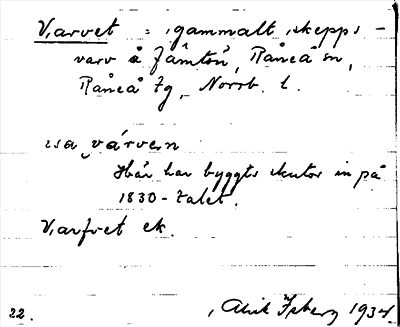 Varvet = gammalt skepps-
varv å Jämtön, Råneå sn,
Råneå tg, Norrb. l.
usa várvẹn
Här har byggts skutor in på
1830-talet.
Varfvet ek.
22. Alrik Isberg 1934